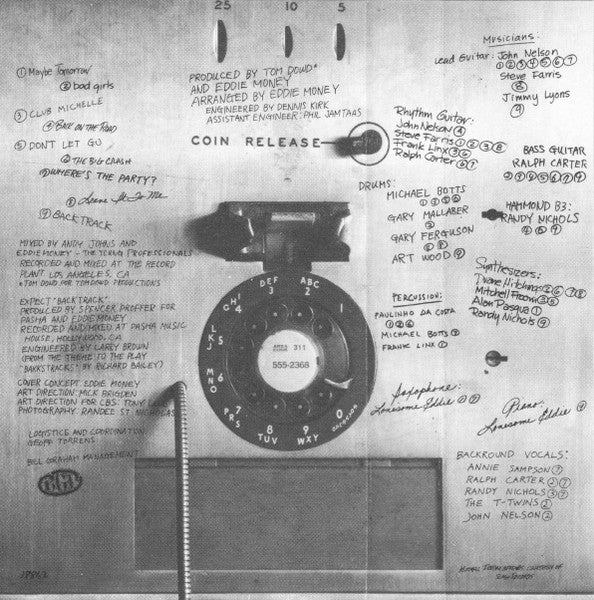 25 10 5
① Maybe Tomorrow
② bad girls
③ CLUB MICHELLE
④ BACK ON THE ROAD
⑤ DON'T LET GO
⑥ THE BIG CRASH
⑦ WHERE'S THE PARTY?
⑧ Leave It To Me
⑨ BACKTRACK
PRODUCED BY TOM DOWD*
AND EDDIE MONEY
ARRANGED BY EDDIE MONEY
ENGINEERED BY DENNIS KIRK
ASSISTANT ENGINEER: PHIL JAMTAAS
COIN RELEASE
MIXED BY ANDY JOHNS AND
EDDIE MONEY - THE YOUNG PROFESSIONALS
RECORDED AND MIXED AT THE RECORD
PLANT LOS ANGELES, CA
* TOM DOWD FOR TOM DOWD PRODUCTIONS
EXCEPT "BACKTRACK"
PRODUCED BY SPENCER PROFFER FOR
PASHA AND EDDIE MONEY
RECORDED AND MIXED AT PASHA MUSIC
HOUSE, HOLLYWOOD, CA
ENGINEERED BY LARRY BROWN
(FROM THE THEME TO THE PLAY
"BACKSTRACKS" BY RICHARD BAILEY)
COVER CONCEPT EDDIE MONEY
ART DIRECTION: MICK BRIGDEN
ART DIRECTION FOR CBS: TONY
PHOTOGRAPHY: RANDEE ST. NICHOLAS
LOGISTICS AND COORDINATION
GEOFF TORRENS
BILL GRAHAM MANAGEMENT
Musicians:
Lead Guitar: John Nelson
①②③④⑤⑥⑦
Steve Farris
⑧
Jimmy Lyons
⑨
Rhythm Guitar:
John Nelson ④
Steve Farris ①②③⑧
Frank Linx ③⑥
Ralph Carter ⑥⑦
BASS GUITAR
RALPH CARTER
DRUMS:
MICHAEL BOTTS
GARY MALLABER
GARY FERGUSON
ART WOOD ⑨
HAMMOND B3:
RANDY NICHOLS
Synthesizers:
Duane Hitchings
Mitchell Froom
Alan Pasqua ①
Randy Nichols ⑨
PERCUSSION:
PAULINHO DA COSTA
MICHAEL BOTTS
FRANK LINX ①
Saxophone:
Lonesome Eddie
Piano:
Lonesome Eddie
BACKROUND VOCALS:
ANNIE SAMPSON ⑦
RALPH CARTER ②⑦
RANDY NICHOLS ③⑦
THE T-TWINS ②
JOHN NELSON ②
ABC
2
DEF
3
GHI
4
JKL
5
MNO
6
PRS
7
TUV
8
WXY
9
OPERATOR
0
1
AREA CODE 311
555-2368
BGM